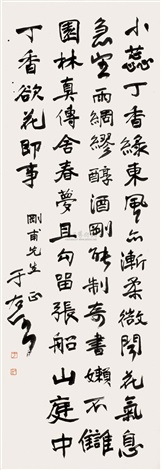 小蕊丁香綠東風亦漸柔微聞花氣息
急定雨綢繆醇酒剛能制奇書嬾不讎
園林真傳舍春夢且勾留張船山庭中
丁香欲花即事
剛甫先生正
于右任